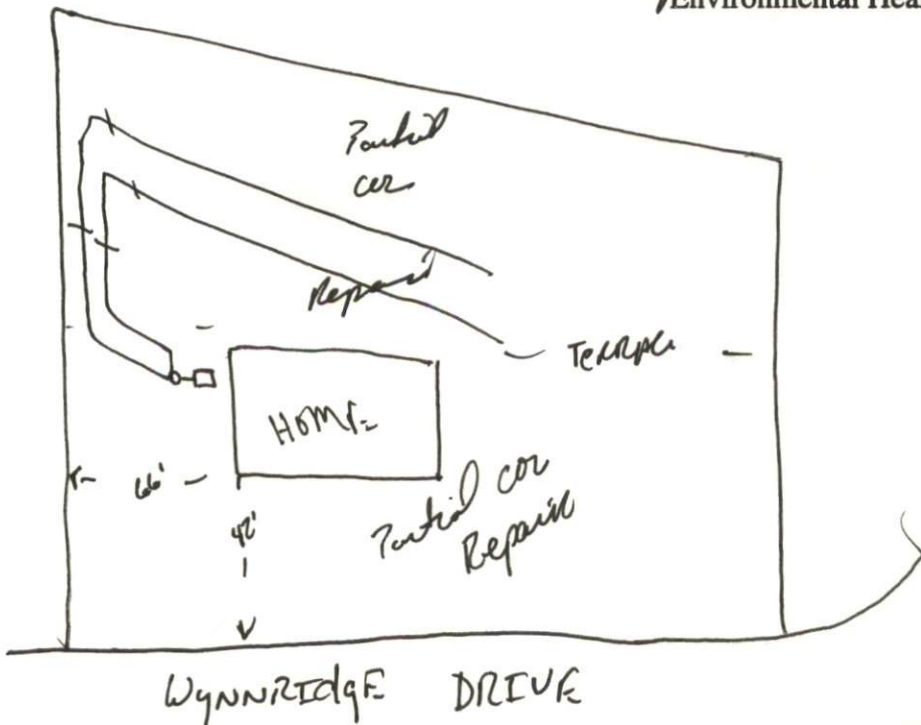 Environmental Hea
Partial
cor
Repair
TERRACE
HOME
66'
42'
Partial cor
Repair
WYNNRIdgE DRIVE